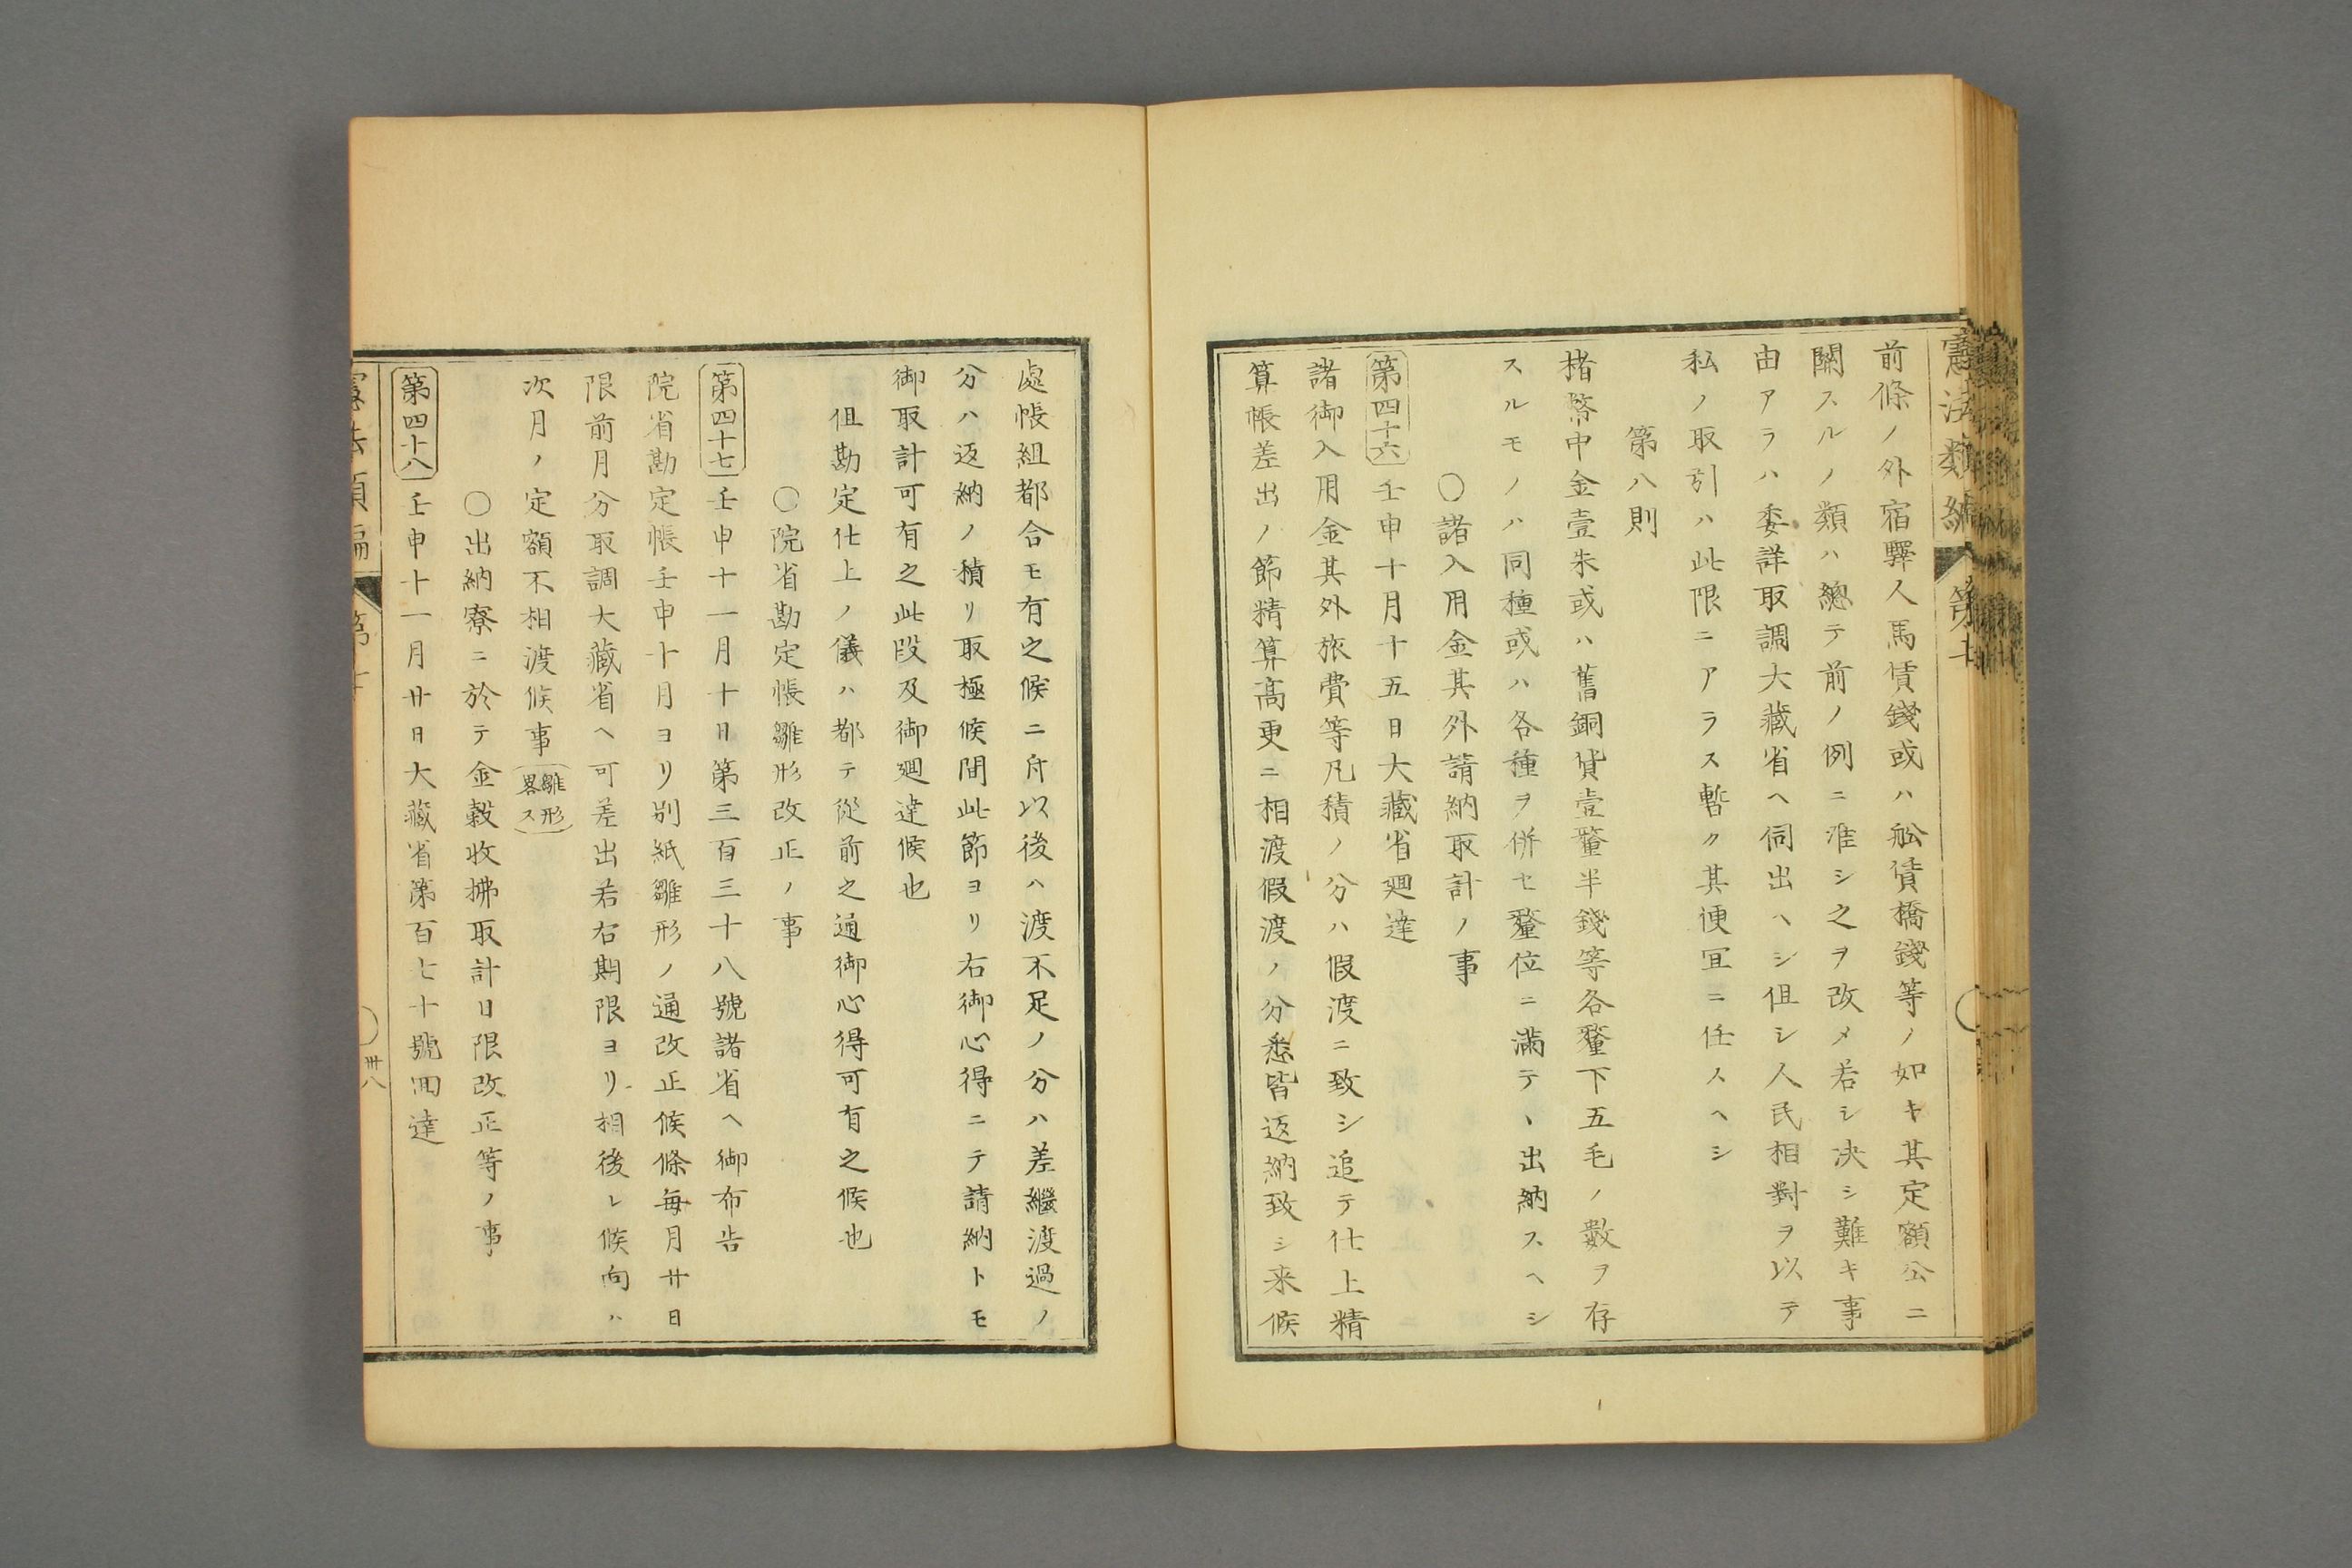 憲法類編 第十
前條ノ外宿驛人馬賃錢或ハ舩賃橋錢等ノ如キ其定額公ニ
關スルノ類ハ總テ前ノ例ニ准シ之ヲ改メ若シ決シ難キ事
由アラハ委詳取調大藏省ヘ伺出ヘシ但シ人民相對ヲ以テ
私ノ取引ハ此限ニアラス暫ク其便宜ニ任スヘシ
第八則
楮幣中金壹朱或ハ舊銅貨壹釐半錢等各釐下五毛ノ數ヲ存
スルモノハ同種或ハ各種ヲ併セ釐位ニ滿テヽ出納スヘシ
〇諸入用金其外請納取計ノ事
第四十六 壬申十月十五日大藏省廻達
諸御入用金其外旅費等凡積ノ分ハ假渡ニ致シ追テ仕上精
算帳差出ノ節精算高更ニ相渡假渡ノ分悉皆返納致シ来候
處帳組都合モ有之候ニ付以後ハ渡不足ノ分ハ差繼渡過ノ
分ハ返納ノ積リ取極候間此節ヨリ右御心得ニテ請納トモ
御取計可有之此段及御廻達候也
但勘定仕上ノ儀ハ都テ從前之通御心得可有之候也
〇院省勘定帳雛形改正ノ事
第四十七 壬申十一月十日第三百三十八號諸省ヘ御布告
院省勘定帳壬申十月ヨリ別紙雛形ノ通改正候條每月廿日
限前月分取調大藏省ヘ可差出若右期限ヨリ相後レ候向ハ
次月ノ定額不相渡候事(雛形畧ス)
〇出納寮ニ於テ金穀收拂取計日限改正等ノ事
第四十八 壬申十一月廿日大藏省第百七十號囬達
憲法類編 第十 卅八